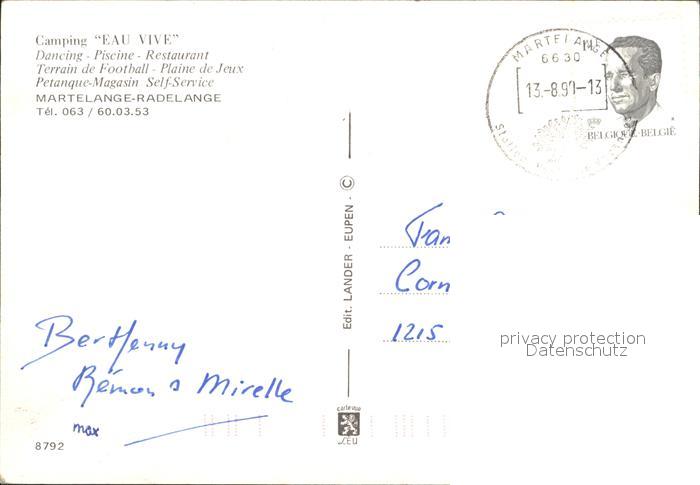 Camping "EAU VIVE"
Dancing - Piscine - Restaurant
Terrain de Football - Plaine de Jeux
Petanque-Magasin Self-Service
MARTELANGE-RADELANGE
Tél. 063 / 60.03.53
MARTELANGE
6630
13.-8.90-13
Station
BELGIQUE-BELGIË
Edit. LANDER - EUPEN - ©
Fam
Corn
1215
privacy protection
Datenschutz
Bert Jenny
Rémon s Mirelle
max
8792
carte vue
LEU